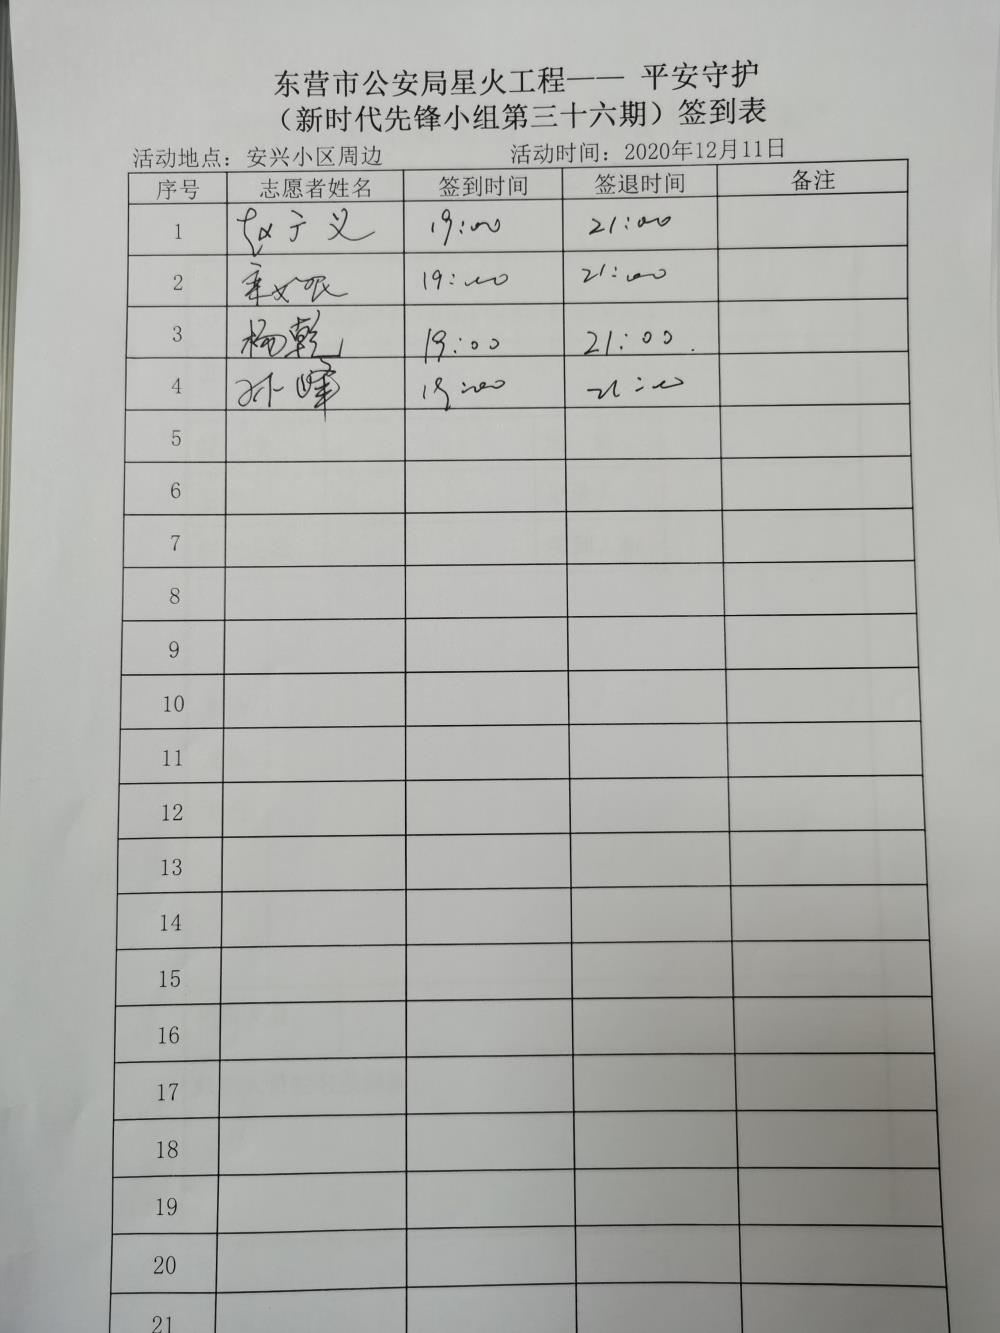 东营市公安局星火工程—— 平安守护
（新时代先锋小组第三十六期）签到表
活动地点：安兴小区周边 活动时间：2020年12月11日
序号 志愿者姓名 签到时间 签退时间 备注
1 赵广义 19:00 21:00
2 19:00 21:00
3 杨乾 19:00 21:00.
4 孙峰 19:00 21:00
5
6
7
8
9
10
11
12
13
14
15
16
17
18
19
20
21